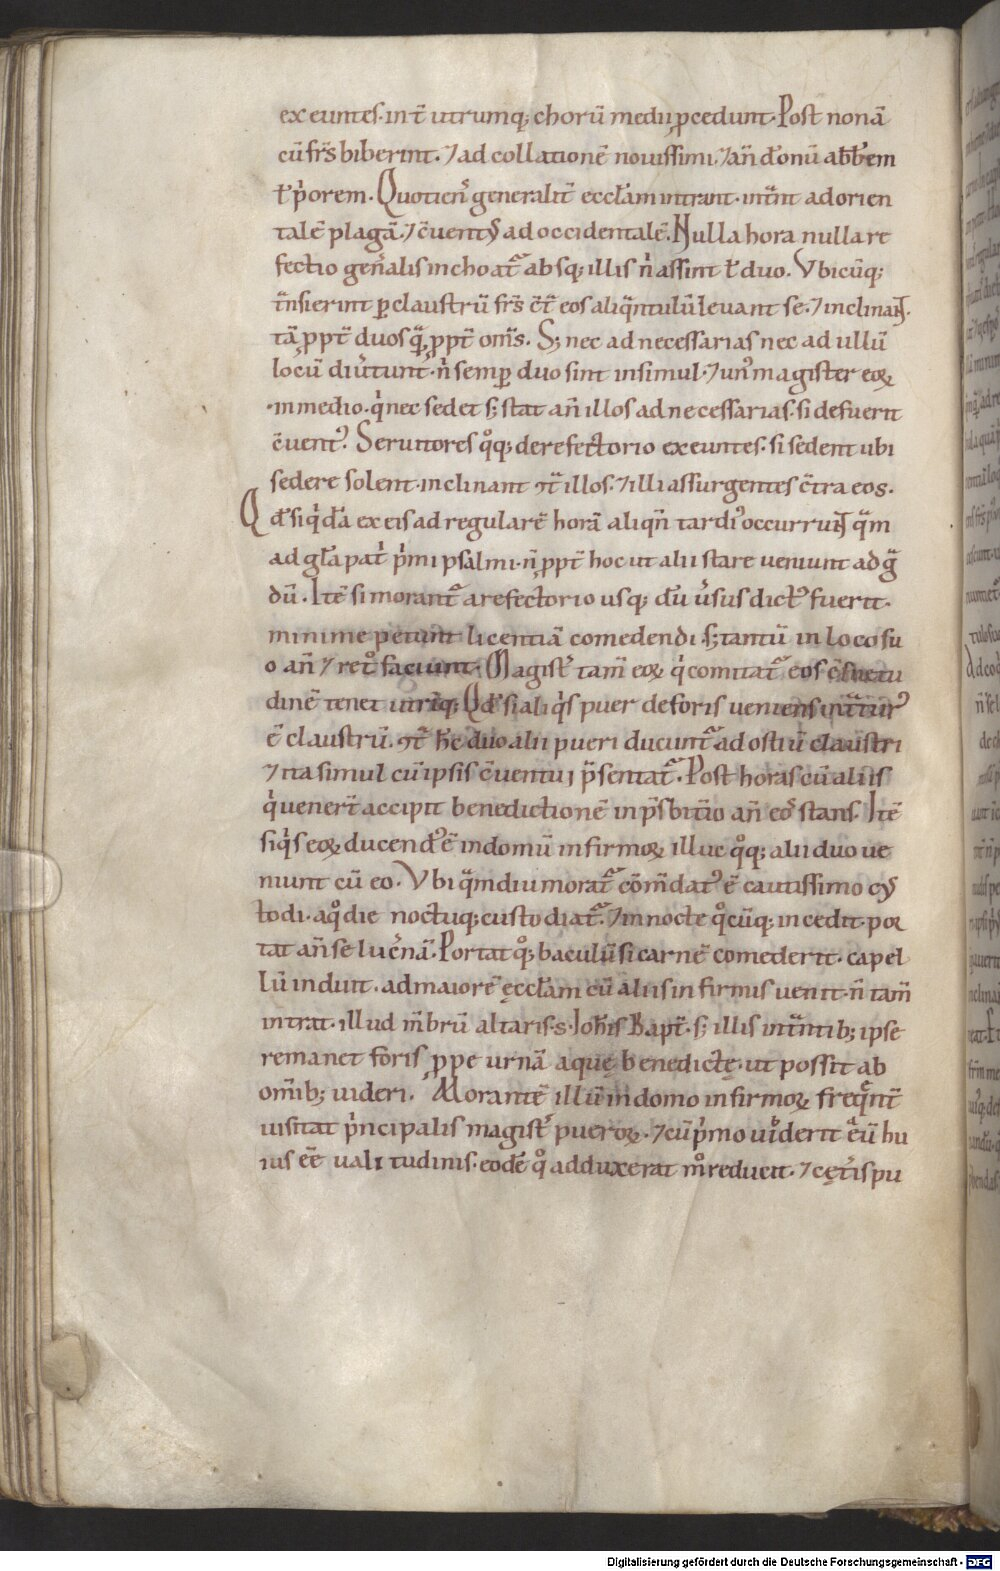 ex euntes. int̄ utrumq; chorū medii ꝓcedunt. Post nonā
cū fr̄s biberint. ⁊ ad collationē nouissimi. ⁊ an̄ đonū abƀem
ł p̍orem. Quotienſ generalit̄ eccłam intrant. intͣnt ad orien
talē plagā. ⁊ c̄uentꝰ ad occidentalē. Nulla hora nulla re
fectio gen̄alis inchoat᷑ absq; illis n̍ assint ł duo. Vbicūq;
tͣnsierint ꝑ claustrū fr̄s c̄t̄ eos aliqͣntulū leuant se. ⁊ inclinant.
tā ꝓpt̄ duos qͣ̄ ꝓpt̄ om̄s. S; nec ad necessarias nec ad ullū
locū diūtunt. n̍ semꝑ duo sint insimul. ⁊ unꝰ magister eoꝝ
in medio. q̍ nec sedet s; stat an̄ illos ad necessarias. si defuerit
c̄uentꝰ. Seruitores qͦq; de refectorio ex euntes. si sedent ubi
sedere solent. inclinant ct̄ illos. ⁊ illi assurgentes c̄tra eos.
Qđ siq̍ đā ex eis ad regularē horā aliqn̄ tardiꝰ occurrunt qͣm
ad głā pat̍ p̍mi psalmi. n̄ ꝓpt̄ hoc ut alii stare ueniunt ad gͣ
dū. Itē si morant᷑ a refectorio usq; dū ūsus dictꝰ fuerit.
minime petunt licentiā comedendi. s; tantū in loco su
o an̄ ⁊ retͦ faciunt. Magist̄ tam̄ eoꝝ q̍ comitat᷑ eos c̄suetu
dinē tenet utriq; Qđ si aliq̍s puer de foris ueniens intͣtur
ē claustrū. ct̄ h̄c duo alii pueri ducunt᷑ ad ostiū claustri
⁊ ita simul cū ipsis c̄uentui p̄sentat᷑. Post horas cū aliis
q̍ uenert̄ accipit benedictionē in p̄sbit̄io an̄ eos stans. Itē
siq̍s eoꝝ ducendꝰ ē in domū infirmoꝝ illuc qͦq; alii duo ue
niunt cū eo. Vbi qͣmdiu morat᷑ com̄datꝰ ē cautissimo cꝰ
todi. a qͦ die noctuq; custodiat᷑. ⁊ in nocte qͦcūq; incedit. por
tat an̄ se luc̄nā. Portat qͦ; baculū si carnē comederit. capel
lū induit. ad maiorē ęccłam cū aliis infirmis uenit. n̄ tam̄
intrat. illud m̄brū altaris. s. Joh̄is Bapt̄. s; illis intͣntib; ipse
remanet foris ꝓpe urnā aquę benedictę. ut possit ab
om̄ib; uideri. Morantē illū in domo infirmoꝝ freqͤnt̄
uisitat p̍ncipalis magist̄ pueroꝝ. ⁊ cū p̍mo uiderit eū hu
ius ēē ualitudinis. eodē qͦ adduxerat mͦ reducit. ⁊ cęt̄is pu
Digitalisierung gefördert durch die Deutsche Forschungsgemeinschaft - DFG